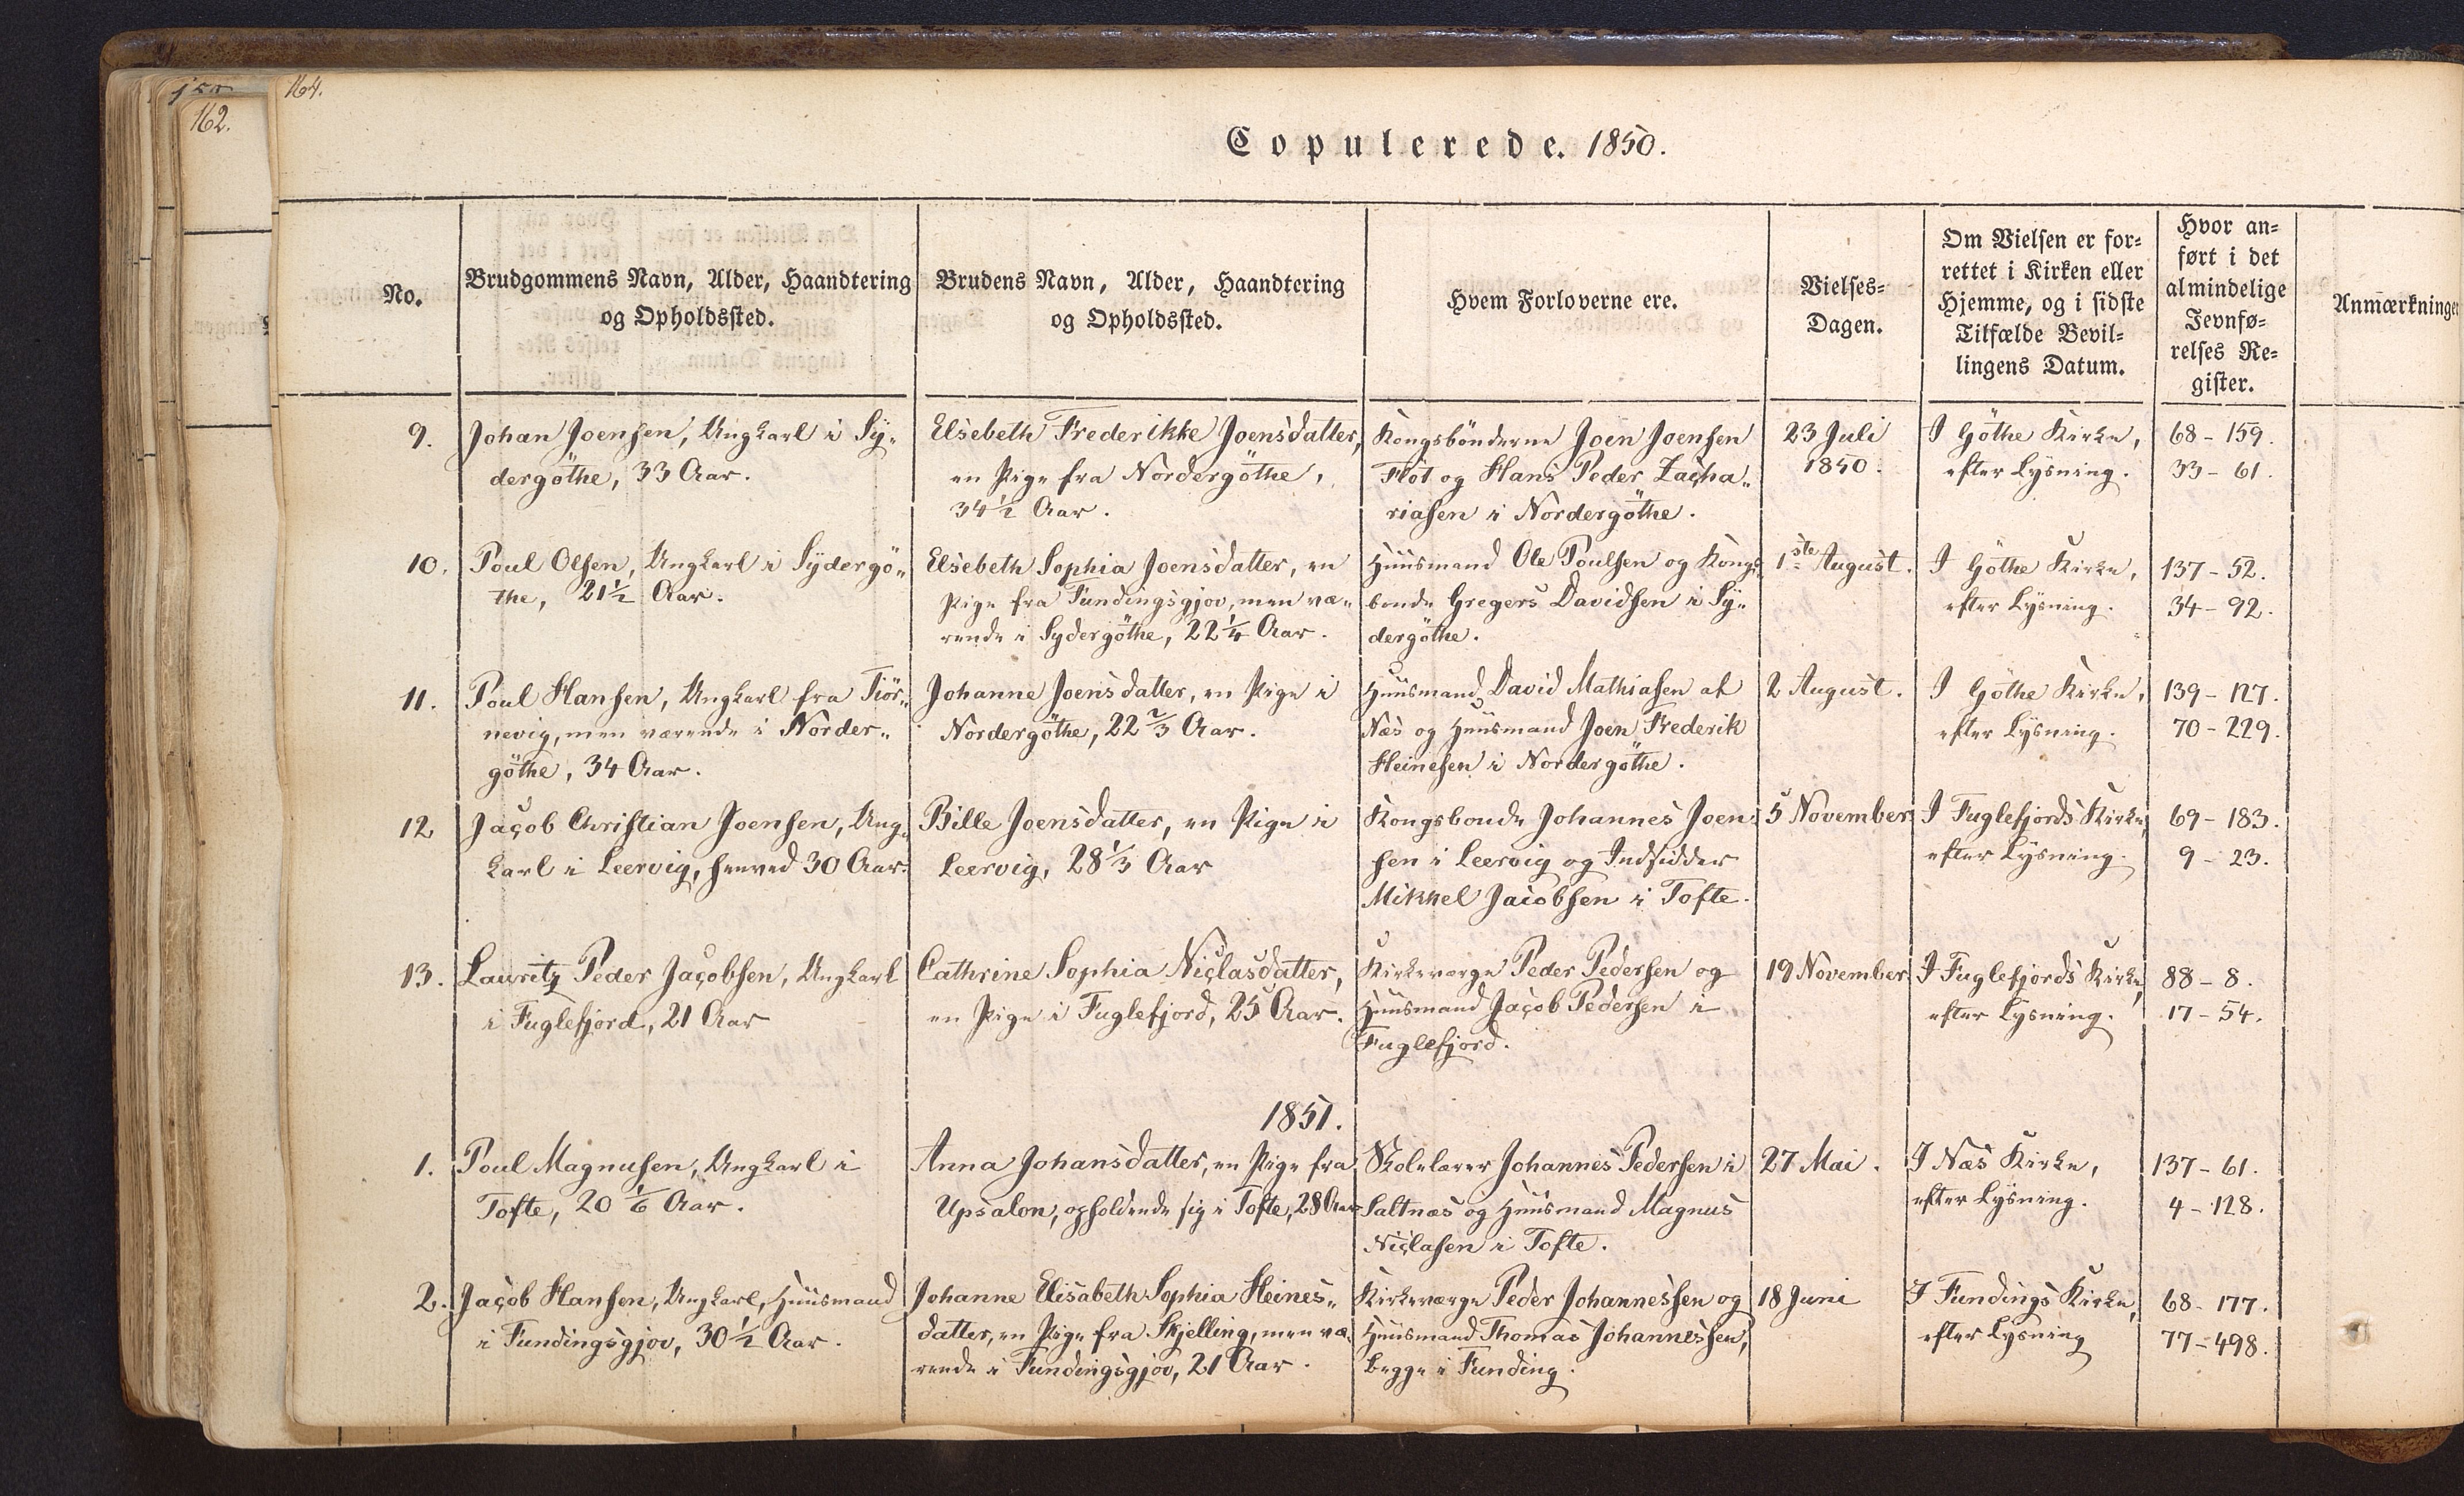 164.
162.
Copulerede. 1850.
No.
Brudgommens Navn, Alder, Haandtering
og Opholdssted.
Brudens Navn, Alder, Haandtering
og Opholdssted.
Hvem Forloverne ere.
Vielses-
Dagen.
Om Vielsen er for-
rettet i Kirken eller
Hjemme, og i sidste
Tilfælde Bevil-
lingens Datum.
Hvor an-
ført i det
almindelige
Jevnfø-
relses Re-
gister.
Anmærkninger
9.
Johan Joensen, Ungkarl i Sy-
dergöthe, 33 Aar.
Elsebeth Frederikke Joensdatter,
en Pige fra Nordergöthe,
34 1/2 Aar.
Kongsbönderne Joen Joensen
Flöt og Hans Peder Zacha-
riasen i Nordergöthe.
23 Juli
1850.
I Göthe Kirke,
efter Lysning.
68 - 159.
33 - 61.
10.
Poul Olsen, Ungkarl i Sydergö-
the, 21 1/2 Aar.
Elsebeth Sophia Joensdatter, en
Pige fra Fundingsgjov, men væ-
rende i Sydergöthe, 22 1/4 Aar.
Huusmand Ole Poulsen og Kongs-
bonde Gregers Davidsen i Sy-
dergöthe.
1ste August.
I Göthe Kirke,
efter Lysning.
137 - 52.
34 - 92.
11.
Poul Hansen, Ungkarl fra Tiör-
nevig, men værende i Norder-
göthe, 34 Aar.
Johanne Joensdatter, en Pige i
Nordergöthe, 22 2/3 Aar.
Huusmand David Mathiasen af
Næs og Huusmand Joen Frederik
Heinesen i Nordergöthe.
2 August.
I Göthe Kirke,
efter Lysning.
139 - 127.
70 - 229.
12
Jacob Christian Joensen, Ung-
karl i Leervig, henved 30 Aar.
Bille Joensdatter, en Pige i
Leervig, 28 1/3 Aar
Kongsbonde Johannes Joen-
sen i Leervig og Indsidder
Mikkel Jacobsen i Tofte.
5 November
I Fuglefjords Kirke,
efter Lysning.
69 - 183.
9 - 23.
13.
Lauritz Peder Jacobsen, Ungkarl
i Fuglefjord, 21 Aar
Cathrine Sophia Niclasdatter,
en Pige i Fuglefjord, 25 Aar.
Kirkeværge Peder Pedersen og
Huusmand Jacob Pedersen i
Fuglefjord.
19 November
I Fuglefjords Kirke,
efter Lysning.
88 - 8.
17 - 54.
1851.
1.
Poul Magnusen, Ungkarl i
Tofte, 20 1/6 Aar.
Anna Johansdatter, en Pige fra
Upsalon, opholdende sig i Tofte, 28 Aar
Skolelærer Johannes Pedersen i
Saltnæs og Huusmand Magnus
Niclasen i Tofte.
27 Mai.
I Næs Kirke,
efter Lysning.
137 - 61.
4 - 128.
2.
Jacob Hansen, Ungkarl, Huusmand
i Fundingsgjov, 30 1/2 Aar.
Johanne Elisabeth Sophia Heines-
datter, en Pige fra Skjelling, men væ-
rende i Fundingsgjov, 21 Aar.
Kirkeværge Peder Johannessen og
Huusmand Thomas Johannessen,
begge i Funding.
18 Juni
I Fundings Kirke,
efter Lysning
68 - 177.
77 - 498.